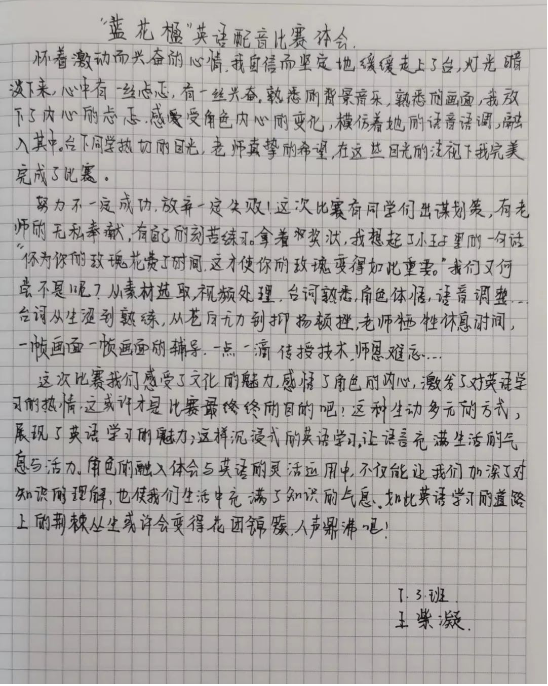 “蓝花楹”英语配音比赛体会.
怀着激动而兴奋的心情,我自信而坚定地缓缓走上了台,灯光暗
淡下来,心中有一丝忐忑,有一丝兴奋,熟悉的背景音乐,熟悉的画面,我放
下了内心的忐忑.感受角色内心的变化,模仿着她的语音语调,融
入其中。台下同学热切的目光,老师真挚的希望,在这些目光的注视下我完美
完成了比赛。
努力不一定成功,放弃一定失败!这次比赛有同学们出谋划策,有老
师的无私奉献,有自己的刻苦练习。拿着奖状,我想起了小王子里的一句话
“你为你的玫瑰花费了时间,这才使你的玫瑰变得如此重要。”我们又何
尝不是呢?从素材选取,视频处理,台词熟悉,角色体悟,语音调整...
台词从生涩到熟练,从苍白无力到抑扬顿挫,老师牺牲休息时间,
一帧画面一帧画面的辅导.一点一滴传授技术,师恩难忘...
这次比赛我们感受了文化的魅力,感悟了角色的内心,激发了对英语学
习的热情,这或许才是比赛最终的目的吧!这种生动多元的方式,
展现了英语学习的魅力;这样沉浸式的英语学习,让语言充满生活的气
息与活力。角色的融入体会与英语的灵活运用中,不仅能让我们加深了对
知识的理解,也使我们生活中充满了知识的气息.如此英语学习的道路
上的荆棘丛生或许会变得花团锦簇、人声鼎沸吧!
7.3.班.
王紫凝.